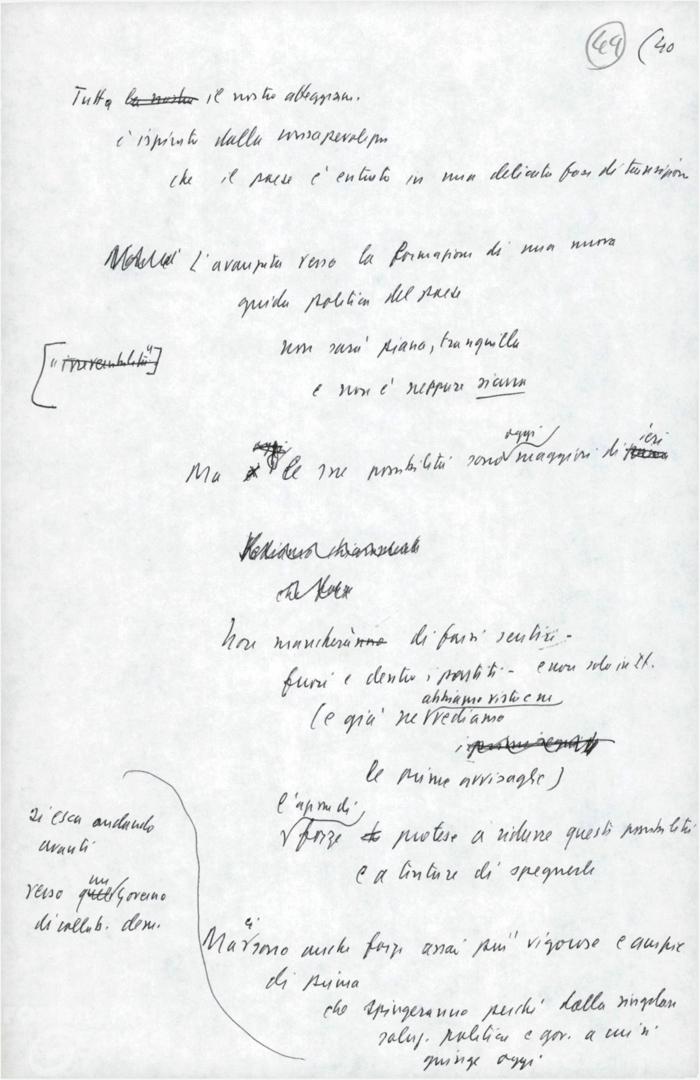 44 (40
Tutto la nostra il nostro atteggiam.
è ispirato dalla consapevolezza
che il paese è entrato in una delicata fase di transizione
L'avanzata verso la formazione di una nuova
guida politica del paese
non sarà piana, tranquilla
e non è neppure sicura
["irreversibilità"]
oggi ieri
Ma le sue possibilità sono maggiori di
Non mancheranno di farsi sentire -
fuori e dentro i partiti - e non solo in It.
abbiamo visto e ne
(e già ne vediamo
le prime avvisaglie)
l'azione di
forze protese a ridurre queste possibilità
e a tentare di spegnerle
si esca andando
avanti
un
verso quel Governo
di collab. dem.
ci
Ma sono anche forze assai più vigorose e ampie
di prima
che spingeranno perché dalla singolare
soluz. politica e gov. a cui si
giunge oggi